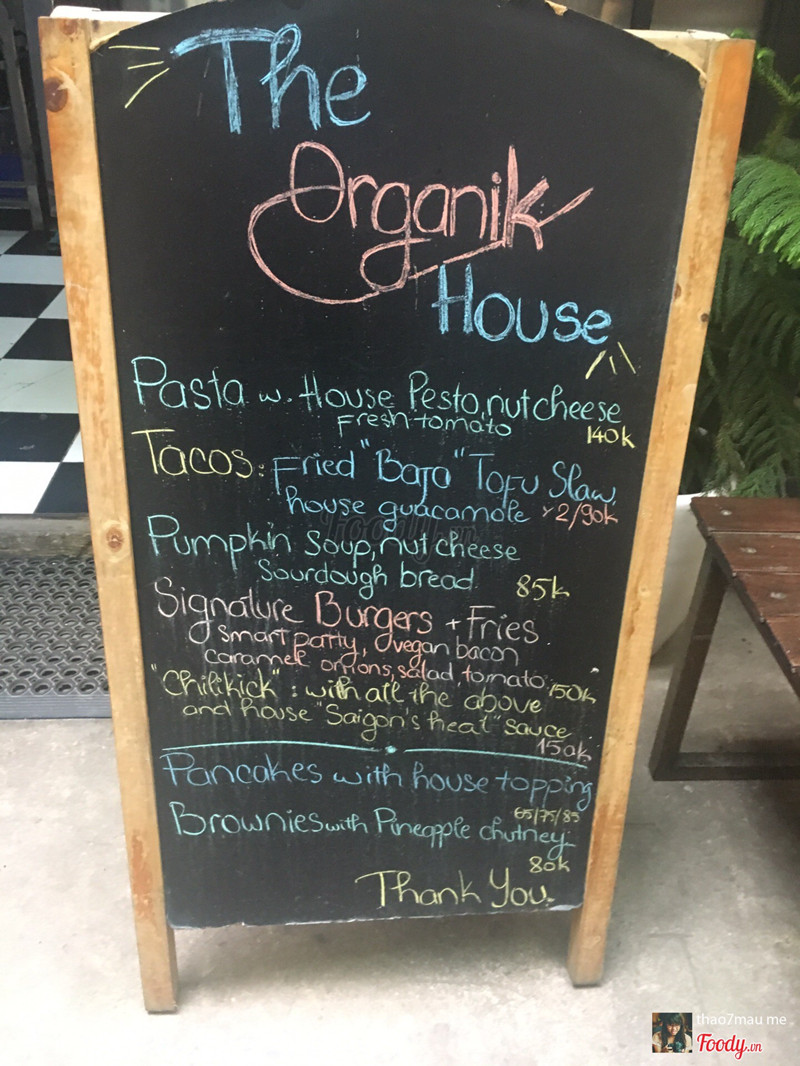 The
Organik
House
Pasta w. House Pesto, nut cheese
Fresh tomato 140k
Tacos: Fried "Baja" Tofu Slaw,
house guacamole x2/90k
Pumpkin Soup, nut cheese
Sourdough bread 85k
Signature Burgers + Fries
smart patty, vegan bacon
caramel onions, salad, tomato. 150k
"Chilikick": with all the above
and house "Saigon's heat" sauce
150k
Pancakes with house topping
65/75/85
Brownies with Pineapple chutney.
80k
Thank You.
Foody.vn
thao7mau me
Foody.vn